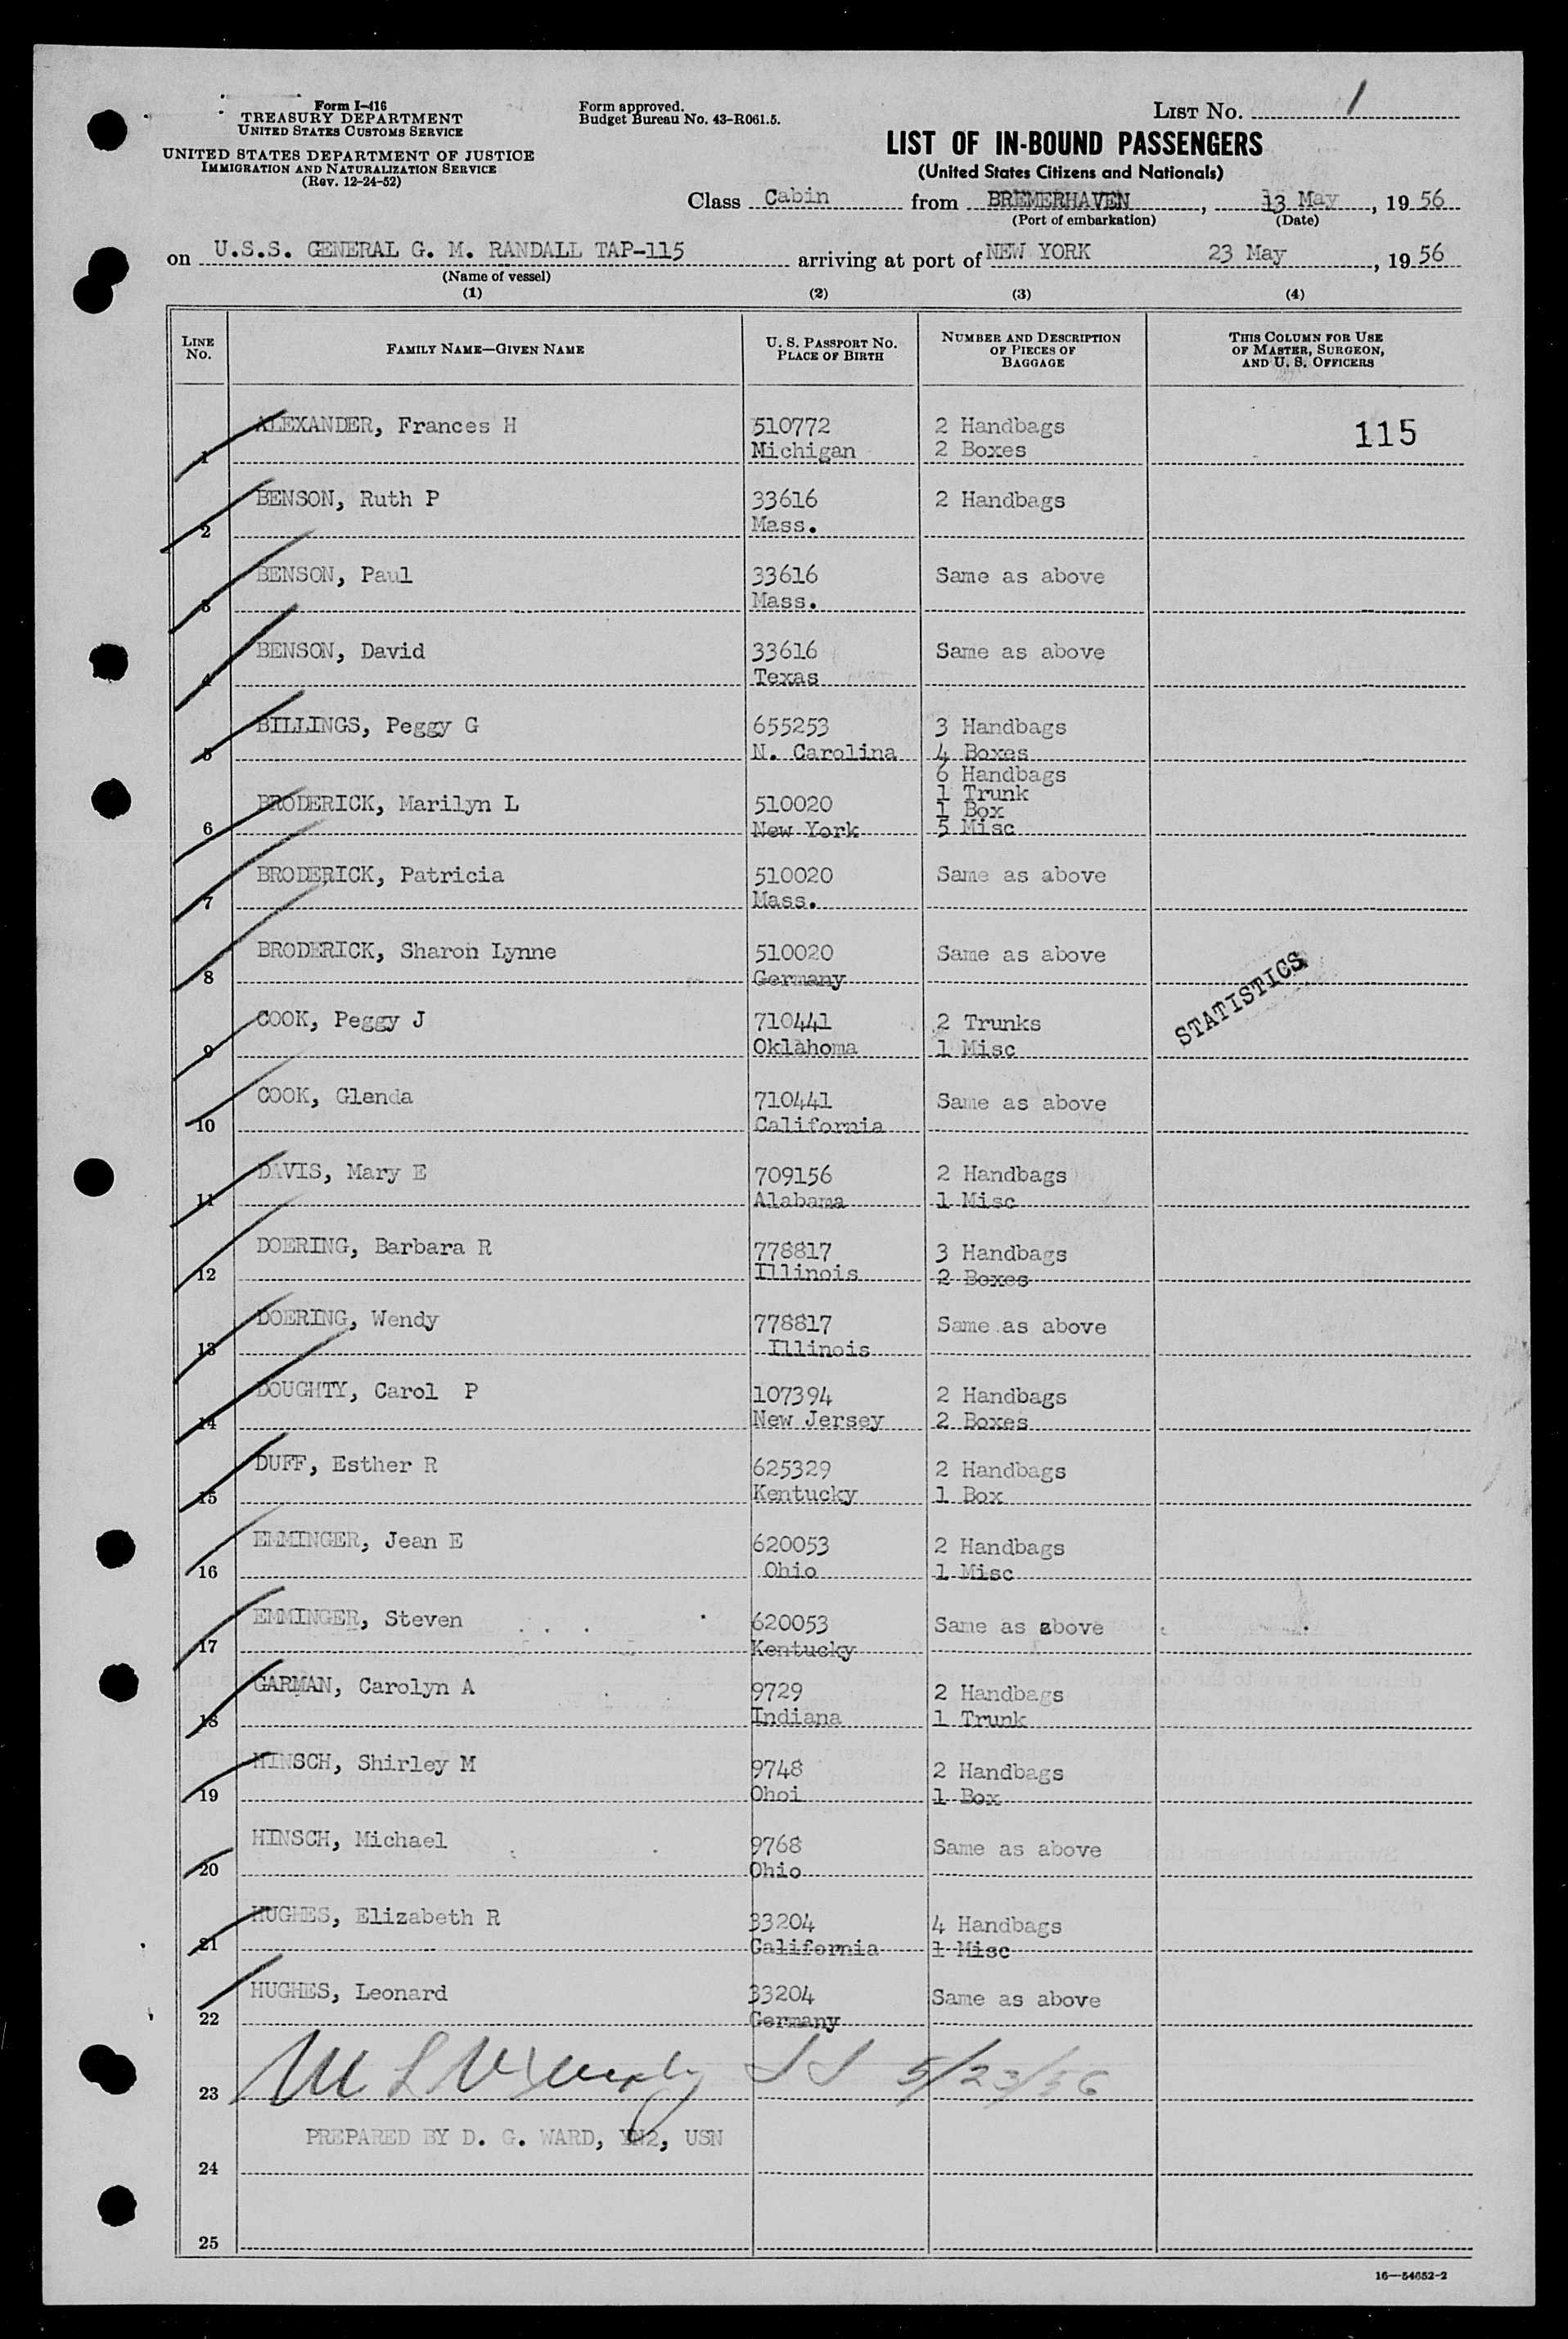 Form I-416
TREASURY DEPARTMENT
UNITED STATES CUSTOMS SERVICE
UNITED STATES DEPARTMENT OF JUSTICE
IMMIGRATION AND NATURALIZATION SERVICE
(Rev. 12-24-52)
Form approved.
Budget Bureau No. 43-R061.5.
LIST No. 1
LIST OF IN-BOUND PASSENGERS
(United States Citizens and Nationals)
Class Cabin from BREMERHAVEN, 13 May, 1956
(Port of embarkation) (Date)
on U.S.S. GENERAL G. M. RANDALL TAP-115 arriving at port of NEW YORK 23 May, 1956
(Name of vessel)
(1) (2) (3) (4)
LINE No. FAMILY NAME—GIVEN NAME U. S. PASSPORT No. PLACE OF BIRTH NUMBER AND DESCRIPTION OF PIECES OF BAGGAGE THIS COLUMN FOR USE OF MASTER, SURGEON, AND U. S. OFFICERS
ALEXANDER, Frances H 510772 2 Handbags 115
1 Michigan 2 Boxes
BENSON, Ruth P 33616 2 Handbags
2 Mass.
BENSON, Paul 33616 Same as above
3 Mass.
BENSON, David 33616 Same as above
4 Texas
BILLINGS, Peggy G 655253 3 Handbags
5 N. Carolina 4 Boxes
6 Handbags
1 Trunk
BRODERICK, Marilyn L 510020 1 Box
6 New York 5 Misc
BRODERICK, Patricia 510020 Same as above
7 Mass.
BRODERICK, Sharon Lynne 510020 Same as above
8 Germany
STATISTICS
COOK, Peggy J 710441 2 Trunks
9 Oklahoma 1 Misc
COOK, Glenda 710441 Same as above
10 California
DAVIS, Mary E 709156 2 Handbags
11 Alabama 1 Misc
DOERING, Barbara R 778817 3 Handbags
12 Illinois 2 Boxes
DOERING, Wendy 778817 Same as above
13 Illinois
DOUGHTY, Carol P 107394 2 Handbags
14 New Jersey 2 Boxes
DUFF, Esther R 625329 2 Handbags
15 Kentucky 1 Box
EMMINGER, Jean E 620053 2 Handbags
16 Ohio 1 Misc
EMMINGER, Steven 620053 Same as above
17 Kentucky
GARMAN, Carolyn A 9729 2 Handbags
18 Indiana 1 Trunk
HINSCH, Shirley M 9748 2 Handbags
19 Ohoi 1 Box
HINSCH, Michael 9768 Same as above
20 Ohio
HUGHES, Elizabeth R 33204 4 Handbags
21 California 1 Misc
HUGHES, Leonard 33204 Same as above
22 Germany
23 5/23/56
PREPARED BY D. G. WARD, YN2, USN
24
25
16—54652-2